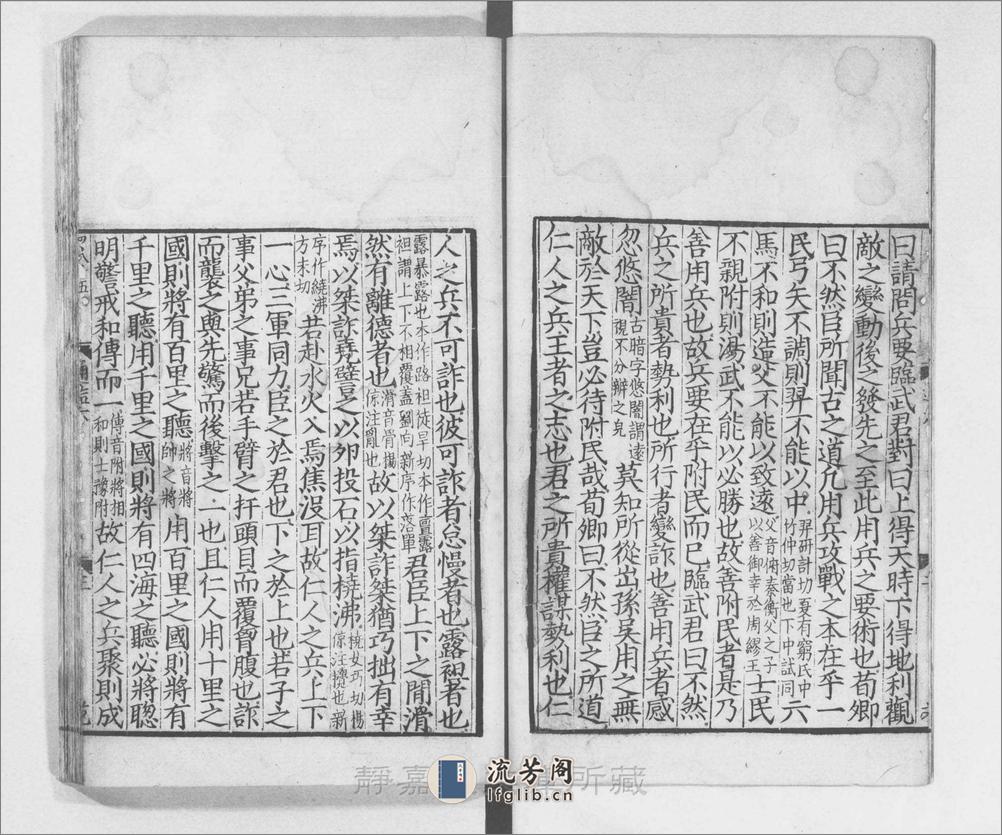 曰請問兵要臨武君對曰上得天時下得地利觀
敵之變動後之發先之至此用兵之要術也荀卿
曰不然臣所聞古之道凡用兵攻戰之本在乎一
民弓矢不調則羿不能以中羿研計切夏有窮氏中竹仲切當也下中試同六
馬不和則造父不能以致遠父音俯秦衡父之子以善御幸於周繆王士民
不親附則湯武不能以必勝也故善附民者是乃
善用兵也故兵要在乎附民而已臨武君曰不然
兵之所貴者勢利也所行者變詐也善用兵者感
忽悠闇古暗字悠闇謂遠視不分辦之皃莫知所從出孫吳用之無
敵於天下豈必待附民哉荀卿曰不然臣之所道
仁人之兵王者之志也君之所貴權謀勢利也仁
人之兵不可詐也彼可詐者怠慢者也露袒者也
露暴露也本作路袒徒旱切本作亶露袒謂上下不相覆蓋劉向新序作落單君臣上下之閒滑
然有離德者也滑音骨楊倞注亂也故以桀詐桀猶巧拙有幸
焉以桀詐堯譬之以卵投石以指橈沸橈女巧切楊倞注攪也新
序作繞沸方未切若赴水火入焉焦沒耳故仁人之兵上下
一心三軍同力臣之於君也下之於上也若子之
事父弟之事兄若手臂之扞頭目而覆胷腹也詐
而襲之與先驚而後擊之一也且仁人用十里之
國則將有百里之聽將音將帥之將用百里之國則將有
千里之聽用千里之國則將有四海之聽必將聰
明警戒和傳而一傳音附將相和則士豫附故仁人之兵聚則成
靜嘉 所藏
流芳阁
lfglib.cn